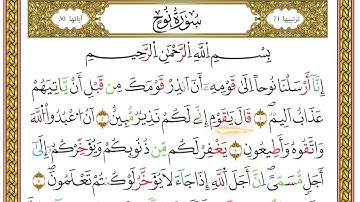 ترتيبها 71
سُورَةُ نُوحٍ
آياتها 30
بِسْمِ اللَّهِ الرَّحْمَٰنِ الرَّحِيمِ
إِنَّا أَرْسَلْنَا نُوحًا إِلَىٰ قَوْمِهِ أَنْ أَنذِرْ قَوْمَكَ مِن قَبْلِ أَن يَأْتِيَهُمْ
عَذَابٌ أَلِيمٌ ۝ قَالَ يَٰقَوْمِ إِنِّي لَكُمْ نَذِيرٌ مُّبِينٌ ۝ أَنِ اعْبُدُوا اللَّهَ
وَاتَّقُوهُ وَأَطِيعُونِ ۝ يَغْفِرْ لَكُم مِّن ذُنُوبِكُمْ وَيُؤَخِّرْكُمْ إِلَىٰ
أَجَلٍ مُّسَمًّى إِنَّ أَجَلَ اللَّهِ إِذَا جَاءَ لَا يُؤَخَّرُ لَوْ كُنتُمْ تَعْلَمُونَ ۝